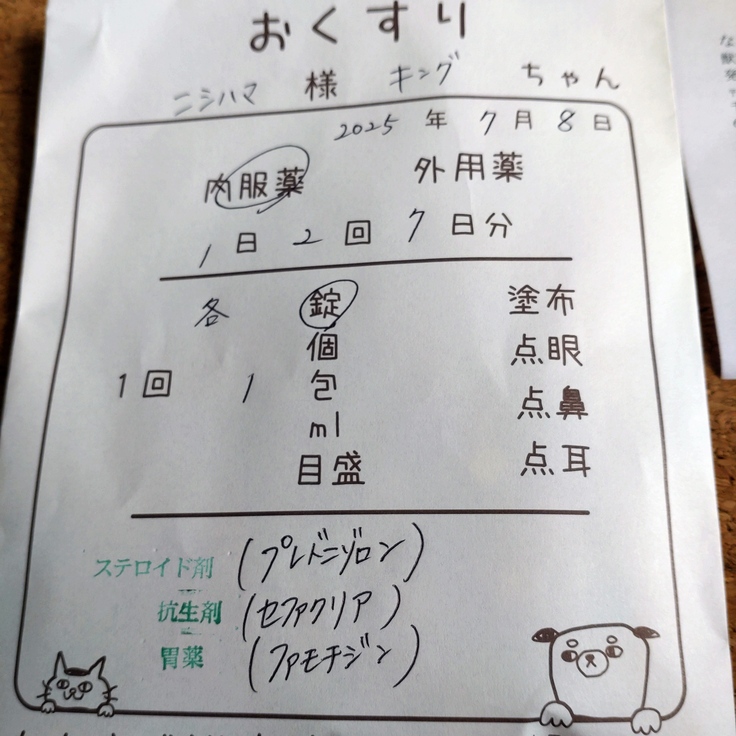 おくすり
ニシハマ 様 キング ちゃん
2025 年 7 月 8 日
内服薬 外用薬
1 日 2 回 7 日分
各 錠 塗布
個 点眼
1回 1 包 点鼻
ml
目盛 点耳
ステロイド剤 (プレドニゾロン)
抗生剤 (セファクリア)
胃薬 (ファモチジン)